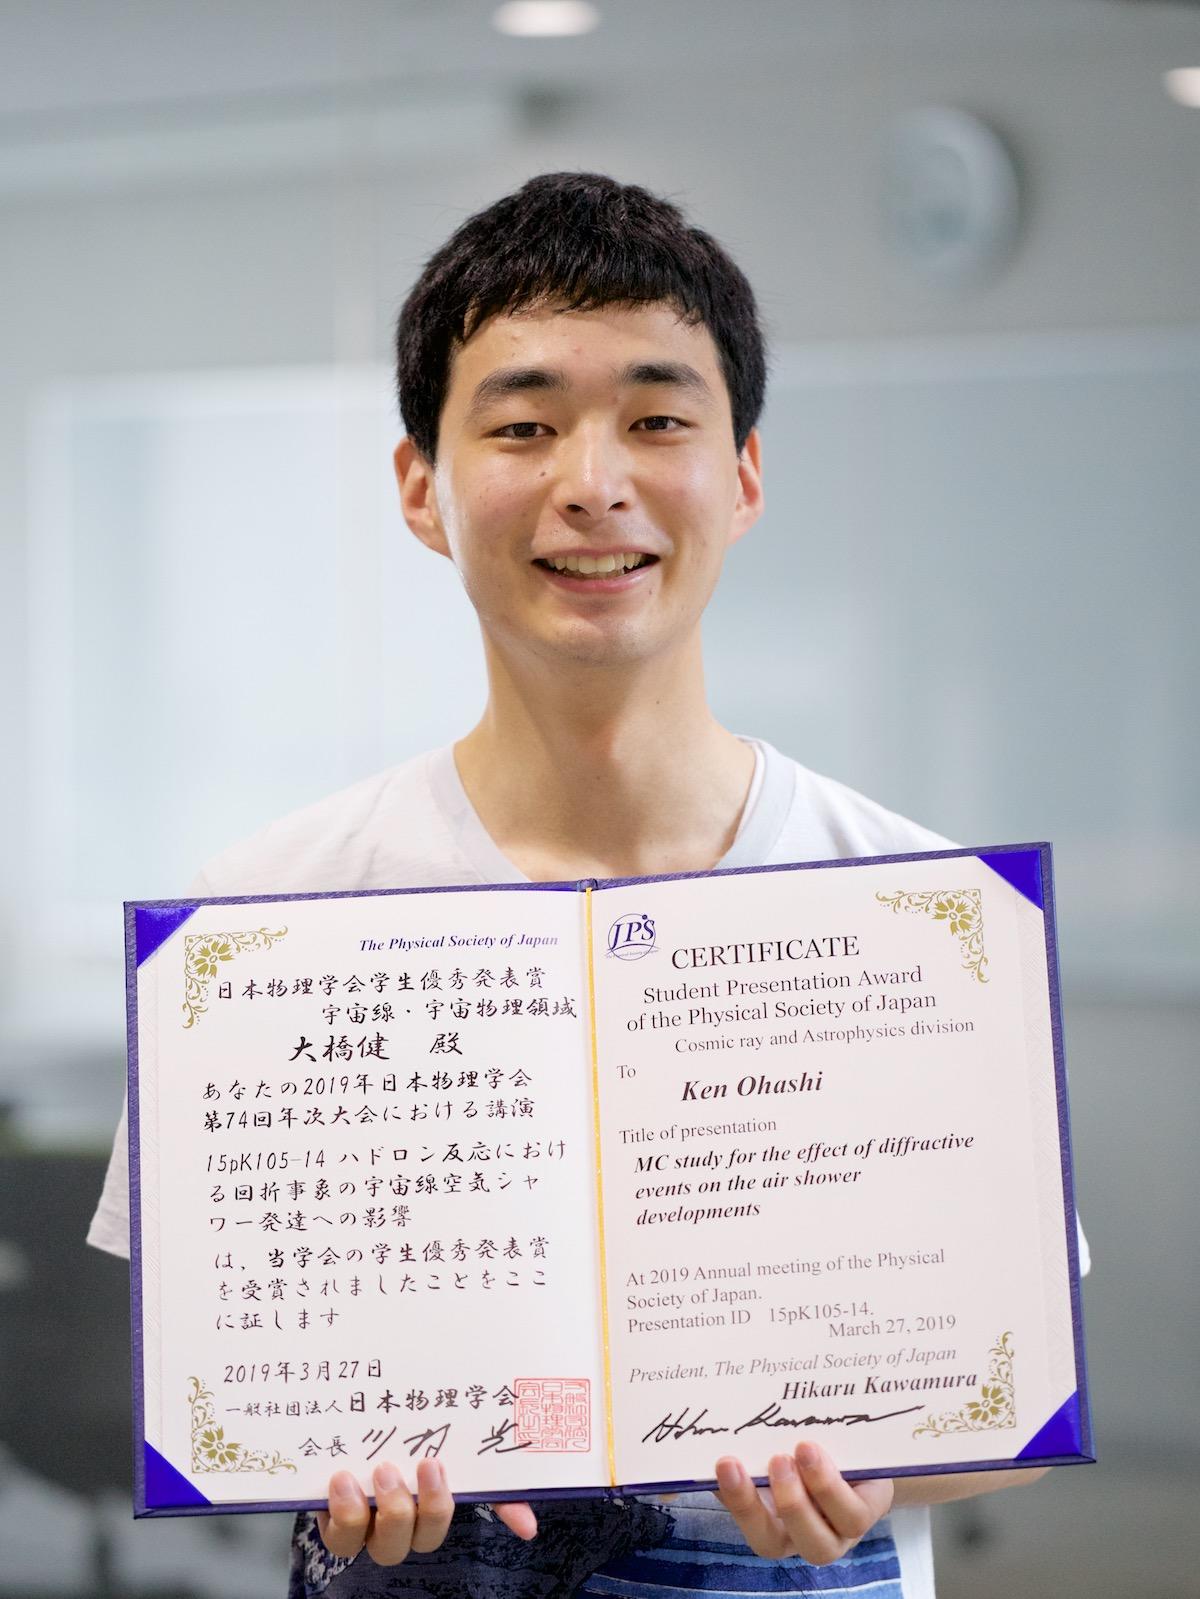 The Physical Society of Japan
日本物理学会学生優秀発表賞
宇宙線・宇宙物理領域
大橋健　殿
あなたの2019年日本物理学会
第74回年次大会における講演
15pK105-14 ハドロン反応におけ
る回折事象の宇宙線空気シャ
ワー発達への影響
は，当学会の学生優秀発表賞
を受賞されましたことをここ
に証します
2019年3月27日
一般社団法人日本物理学会
会長 川村 光
JPS
CERTIFICATE
Student Presentation Award
of the Physical Society of Japan
Cosmic ray and Astrophysics division
To
Ken Ohashi
Title of presentation
MC study for the effect of diffractive
events on the air shower
developments
At 2019 Annual meeting of the Physical
Society of Japan.
Presentation ID 15pK105-14.
March 27, 2019
President, The Physical Society of Japan
Hikaru Kawamura